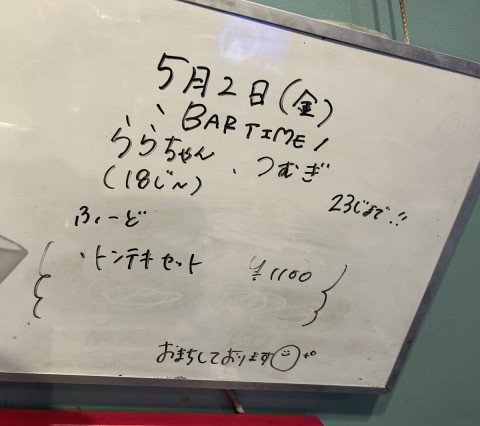 5月2日(金)
\ BAR TIME /
ららちゃん ・つむぎ
(18じ〜)
23じまで!!
ふーど
・トンテキセット ¥1100
おまちしております